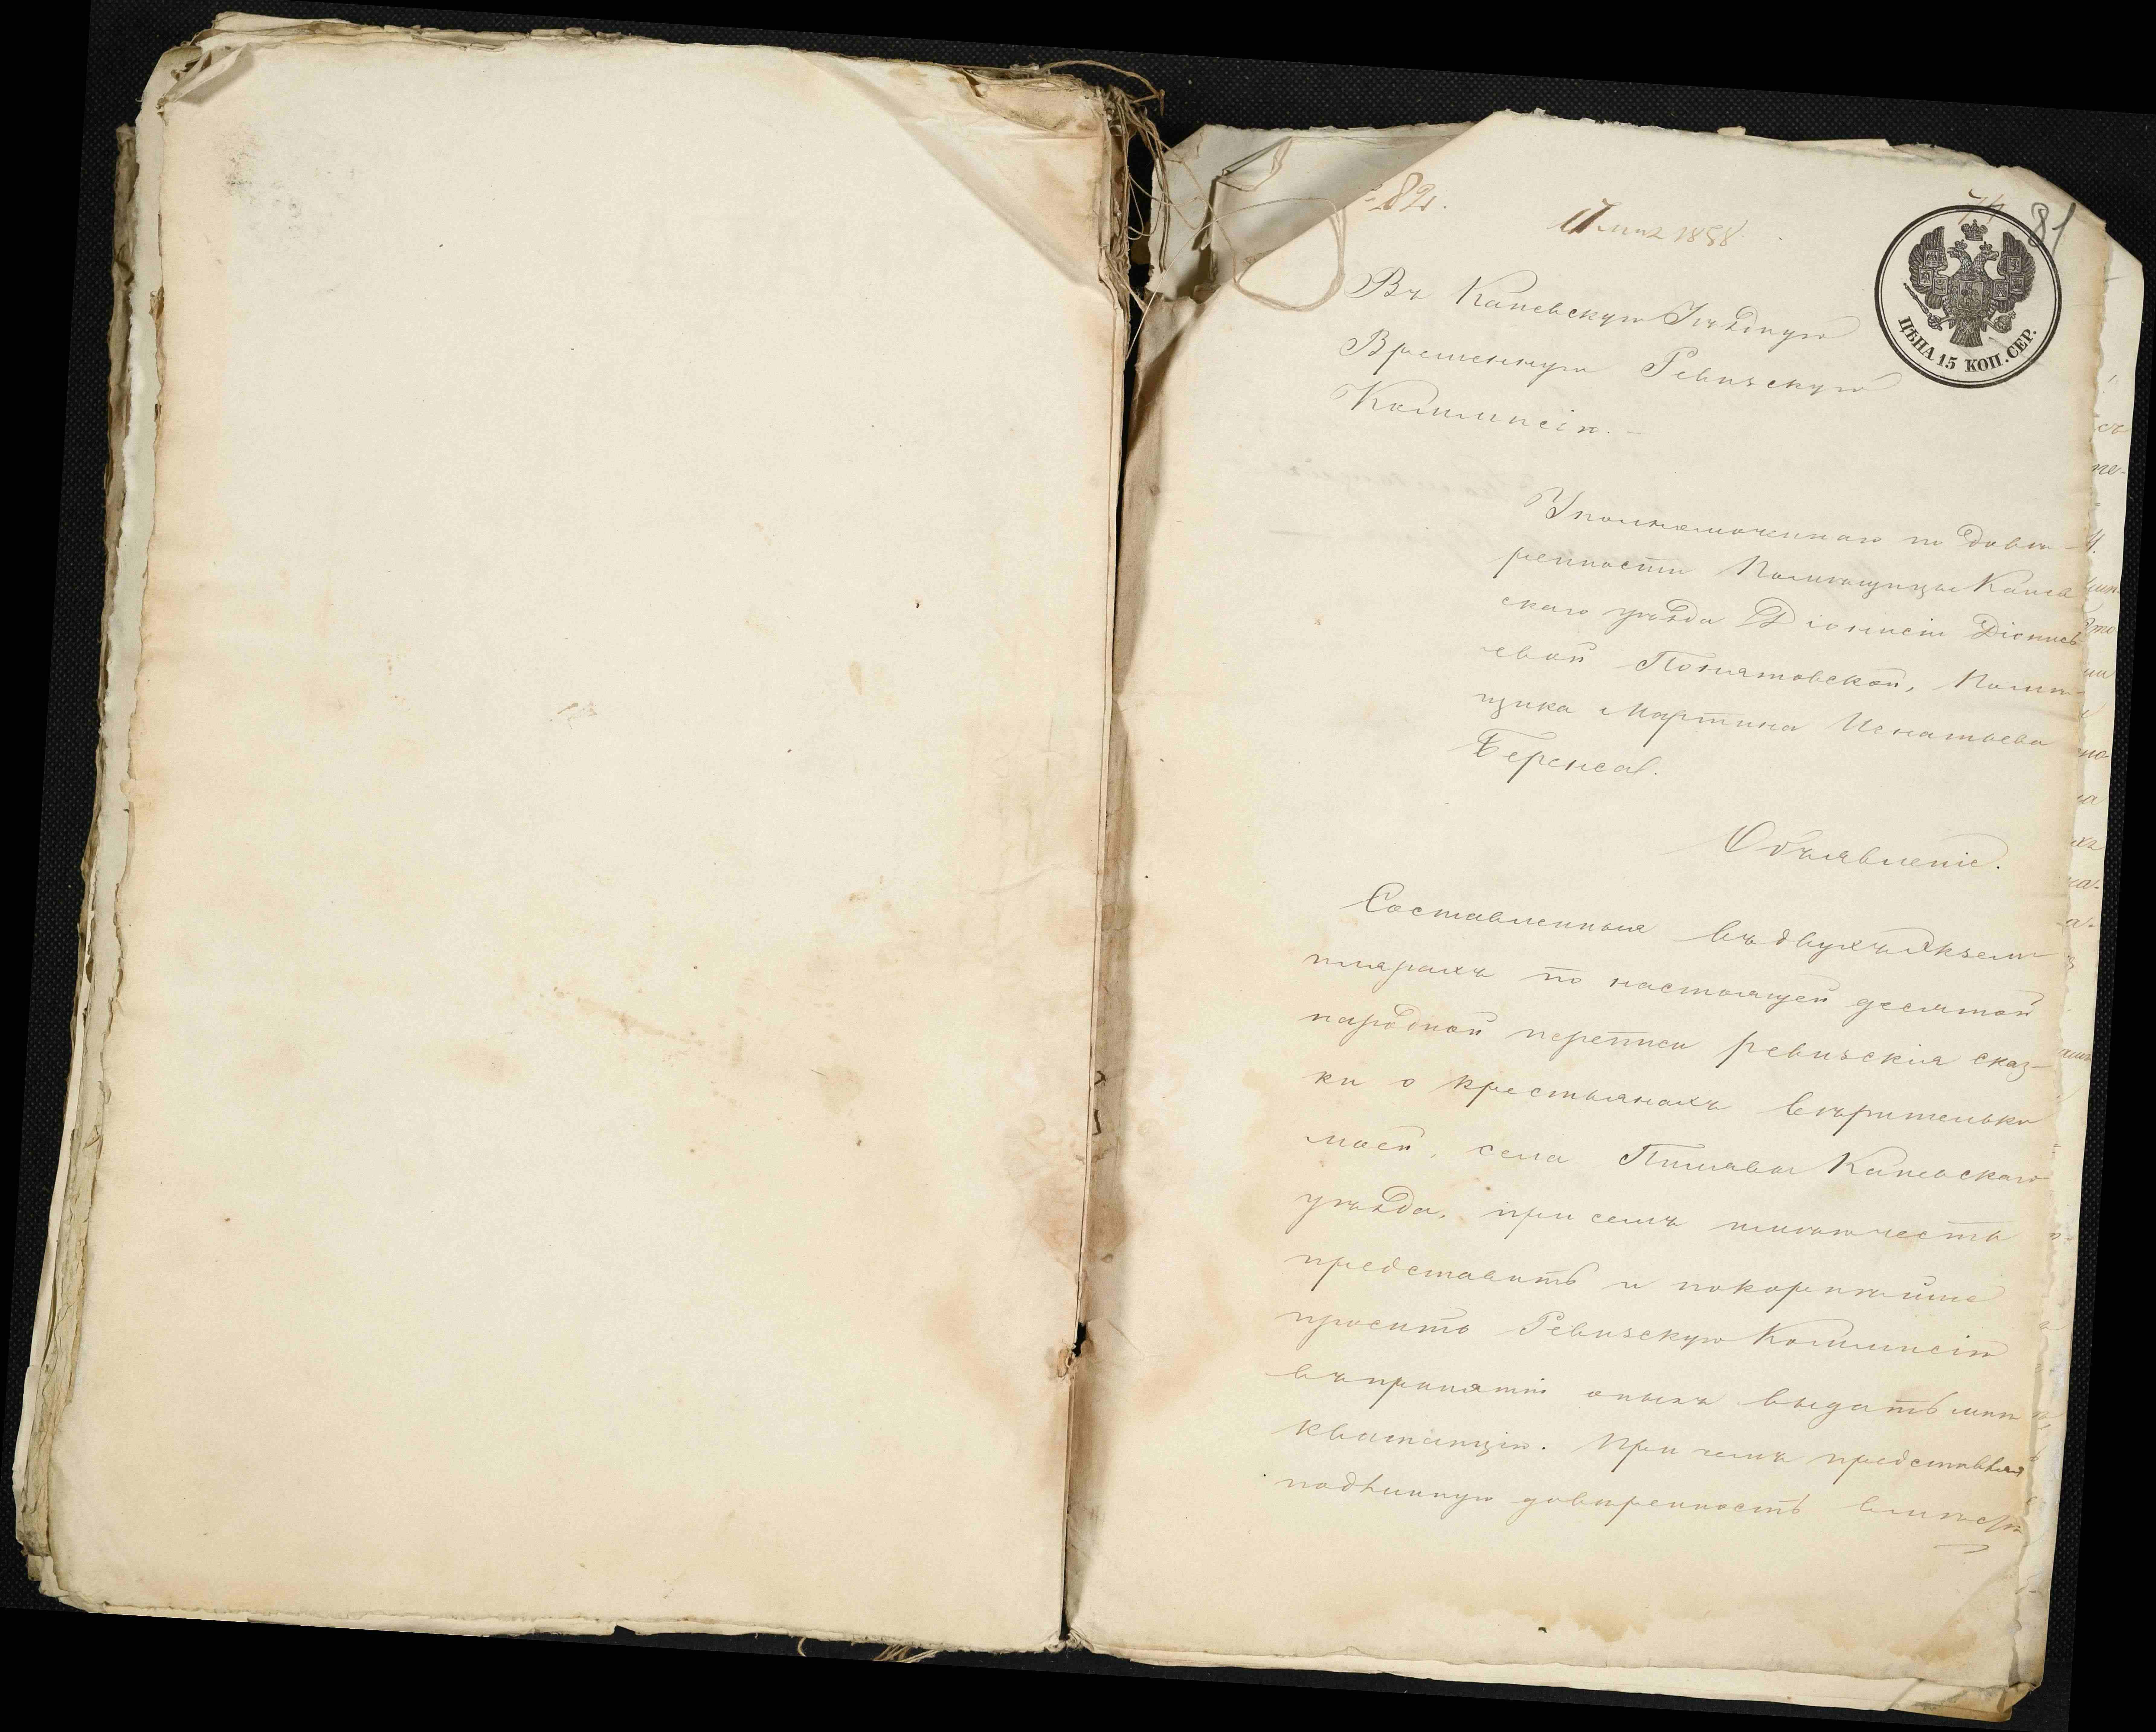 82.
17 мая 1858.
74
81
ЦѢНА 15 КОП. СЕР.
Въ Каневскую Уѣздную
Временную Ревизскую
Коммисію.
Уполномоченнаго по довѣ-
ренности Помѣщицы Канев
скаго уѣзда Діонисіи Діонись
евой Понятовской, Помѣ-
щика Мартина Игнатьева
Объявленіе.
Составленныя въ двухъ экзем
плярахъ по настоящей десятой
народной переписи ревизскія сказ-
ки о крестьянахъ вѣрительки
моей, села Пилявы Каневскаго
уѣзда, при семъ имѣю честь
представить и покорнѣйше
просить Ревизскую Коммисію
въ принятіи оныхъ выдать мнѣ
квитанцію. При чемъ представляя
подлинную довѣренность